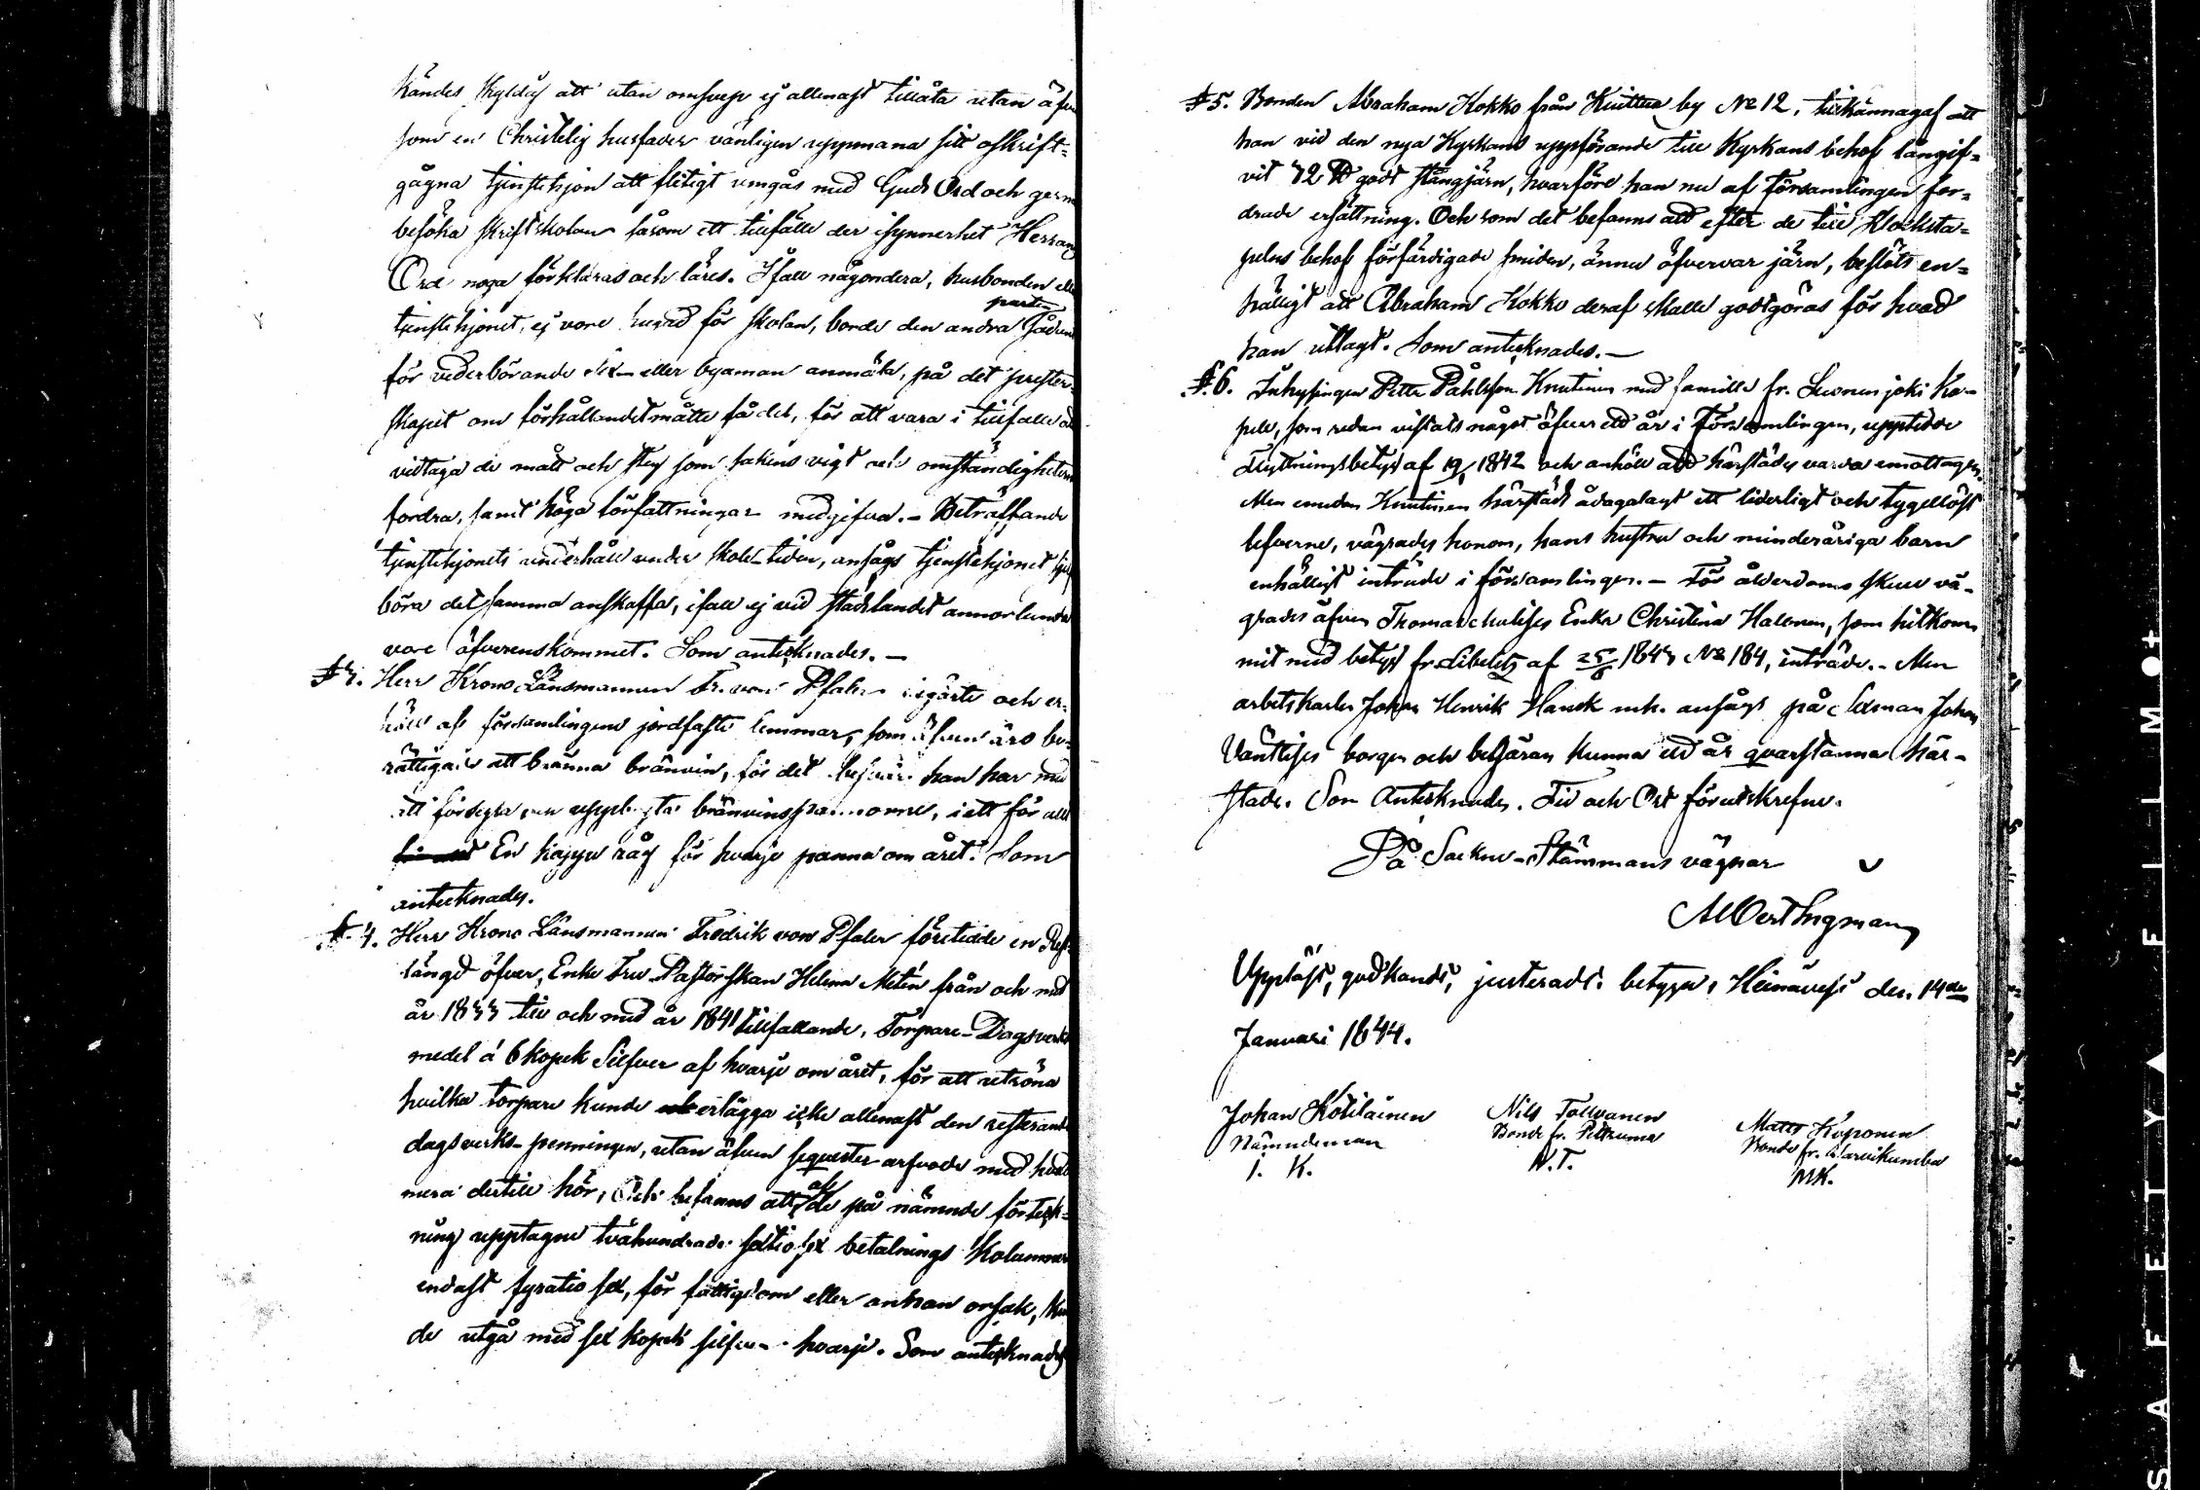 kändes skyldig att utan omsvep ej allenast tillåta utan äfven
som en Christelig husfader vänligen uppmana sitt oskrift-
gågna tjenstehjon att flitigt umgås med Guds Ord och gerna
besöka skriftskolan såsom ett tillfälle der isynnerhet Herrans
Ord noga förklaras och läres. Ifall någondera, husbonden eller
tjenstehjonet, ej vore hugad för skolan, borde den andra parten sådant
för vederbörande Sex- eller byaman anmäla, på det prester-
skapet om förhållandet måtte få del, för att vara i tillfälle att
vidtaga de mått och steg som sakens vigt och omständigheterna
fordra, samt höga författningar medgifva. - Beträffande
tjenstehjonets underhåll under skol-tiden, ansågs tjenstehjonet sjelf
böra detsamma anskaffa, ifall ej vid stadslandet annorlunda
vore öfverenskommet. Som antecknades. -
§ 3. Herr Krono Länsmannen Fr. von Pfaler begärte och er-
höll af församlingens jordfaste lemmar, som äfven äro be-
rättigade att bränna bränvin, för det besvär han har med
att försegla och uppbryta bränvinspannorne, i ett för allt
En kappe råg för hvarje panna om året. Som
antecknades.
§. 4. Herr Krono Länsmannen Fredrik von Pfaler företedde en Rest-
längd öfver, Enke Fru Pastorskan Helena Metén från och med
år 1833 till och med år 1841 tillfallande, Torpare-Dagsverks
medel à 6 kopek Silfver af hvarje om året, för att utröna
hvilka torpare kunde erlägga icke allenast den resterande
dagsverks-penningen, utan äfven sequester arfvode med hvad
mera dertill hör, Och befanns att af de på nämnde förteck-
ning upptagne tvåhundrade sextio sex betalnings kolumner
endast fyratio sex, för fattigdom eller annan orsak, kun
de utgå med sex kopek silfver hvarje. Som antecknades
§ 5. Bonden Abraham Kokko från Kuittua by No 12, tillkännagaf att
han vid den nya Kyrkans uppförande till Kyrkans behof långif-
vit 72 ℔ godt stångjärn, hvarföre han nu af Församlingen for-
drade ersättning. Och som det befanns att efter de till Klocksta-
pelns behof förfärdigade smiden, ännu öfver var järn, beslöts en-
hälligt att Abraham Kokko deraf skulle godtgöras för hvad
han utlagt. Som antecknades. -
§. 6. Inhysingen Petter Påhlsson Knutinen med famille fr. Suonenjoki Ka-
pell, som redan vistats något öfver ett år i Församlingen, uppteedde
Flyttningsbetyg af 1842 och anhöll att härstädes varda emottagen.
Men emedan Knutinen härstädes ådagalagt ett liderligt och tygellöst
lefverne, vägrades honom, hans hustru och minderåriga barn
enhälligt inträde i församlingen. - För ålderdoms skull vä-
grades äfven Enkan Christina Halonen, som hitkom-
mit med betyg fr. Libelitz af 1843 No 184, inträde. - Men
arbetskarlen Johan Henrik Hauck m.h. ansågs på Sexman Johan
borgen och begäran kunna ett år qvarstanna här-
städes. Som Antecknades. Tid och Ort förutskrefne.
På Sockne-Stämmans vägnar
Albert Ingman
Uppläst, godkändt, justeradt, betygar, Heinävesi den 14de
Januari 1844.
Johan Kotilainen Nils Tolvanen Matts Koponen
Nämndeman Bonde fr. Petruma Bonde fr. Sarvikumbu
I. K. N.T. MK.
SAFETY FILM